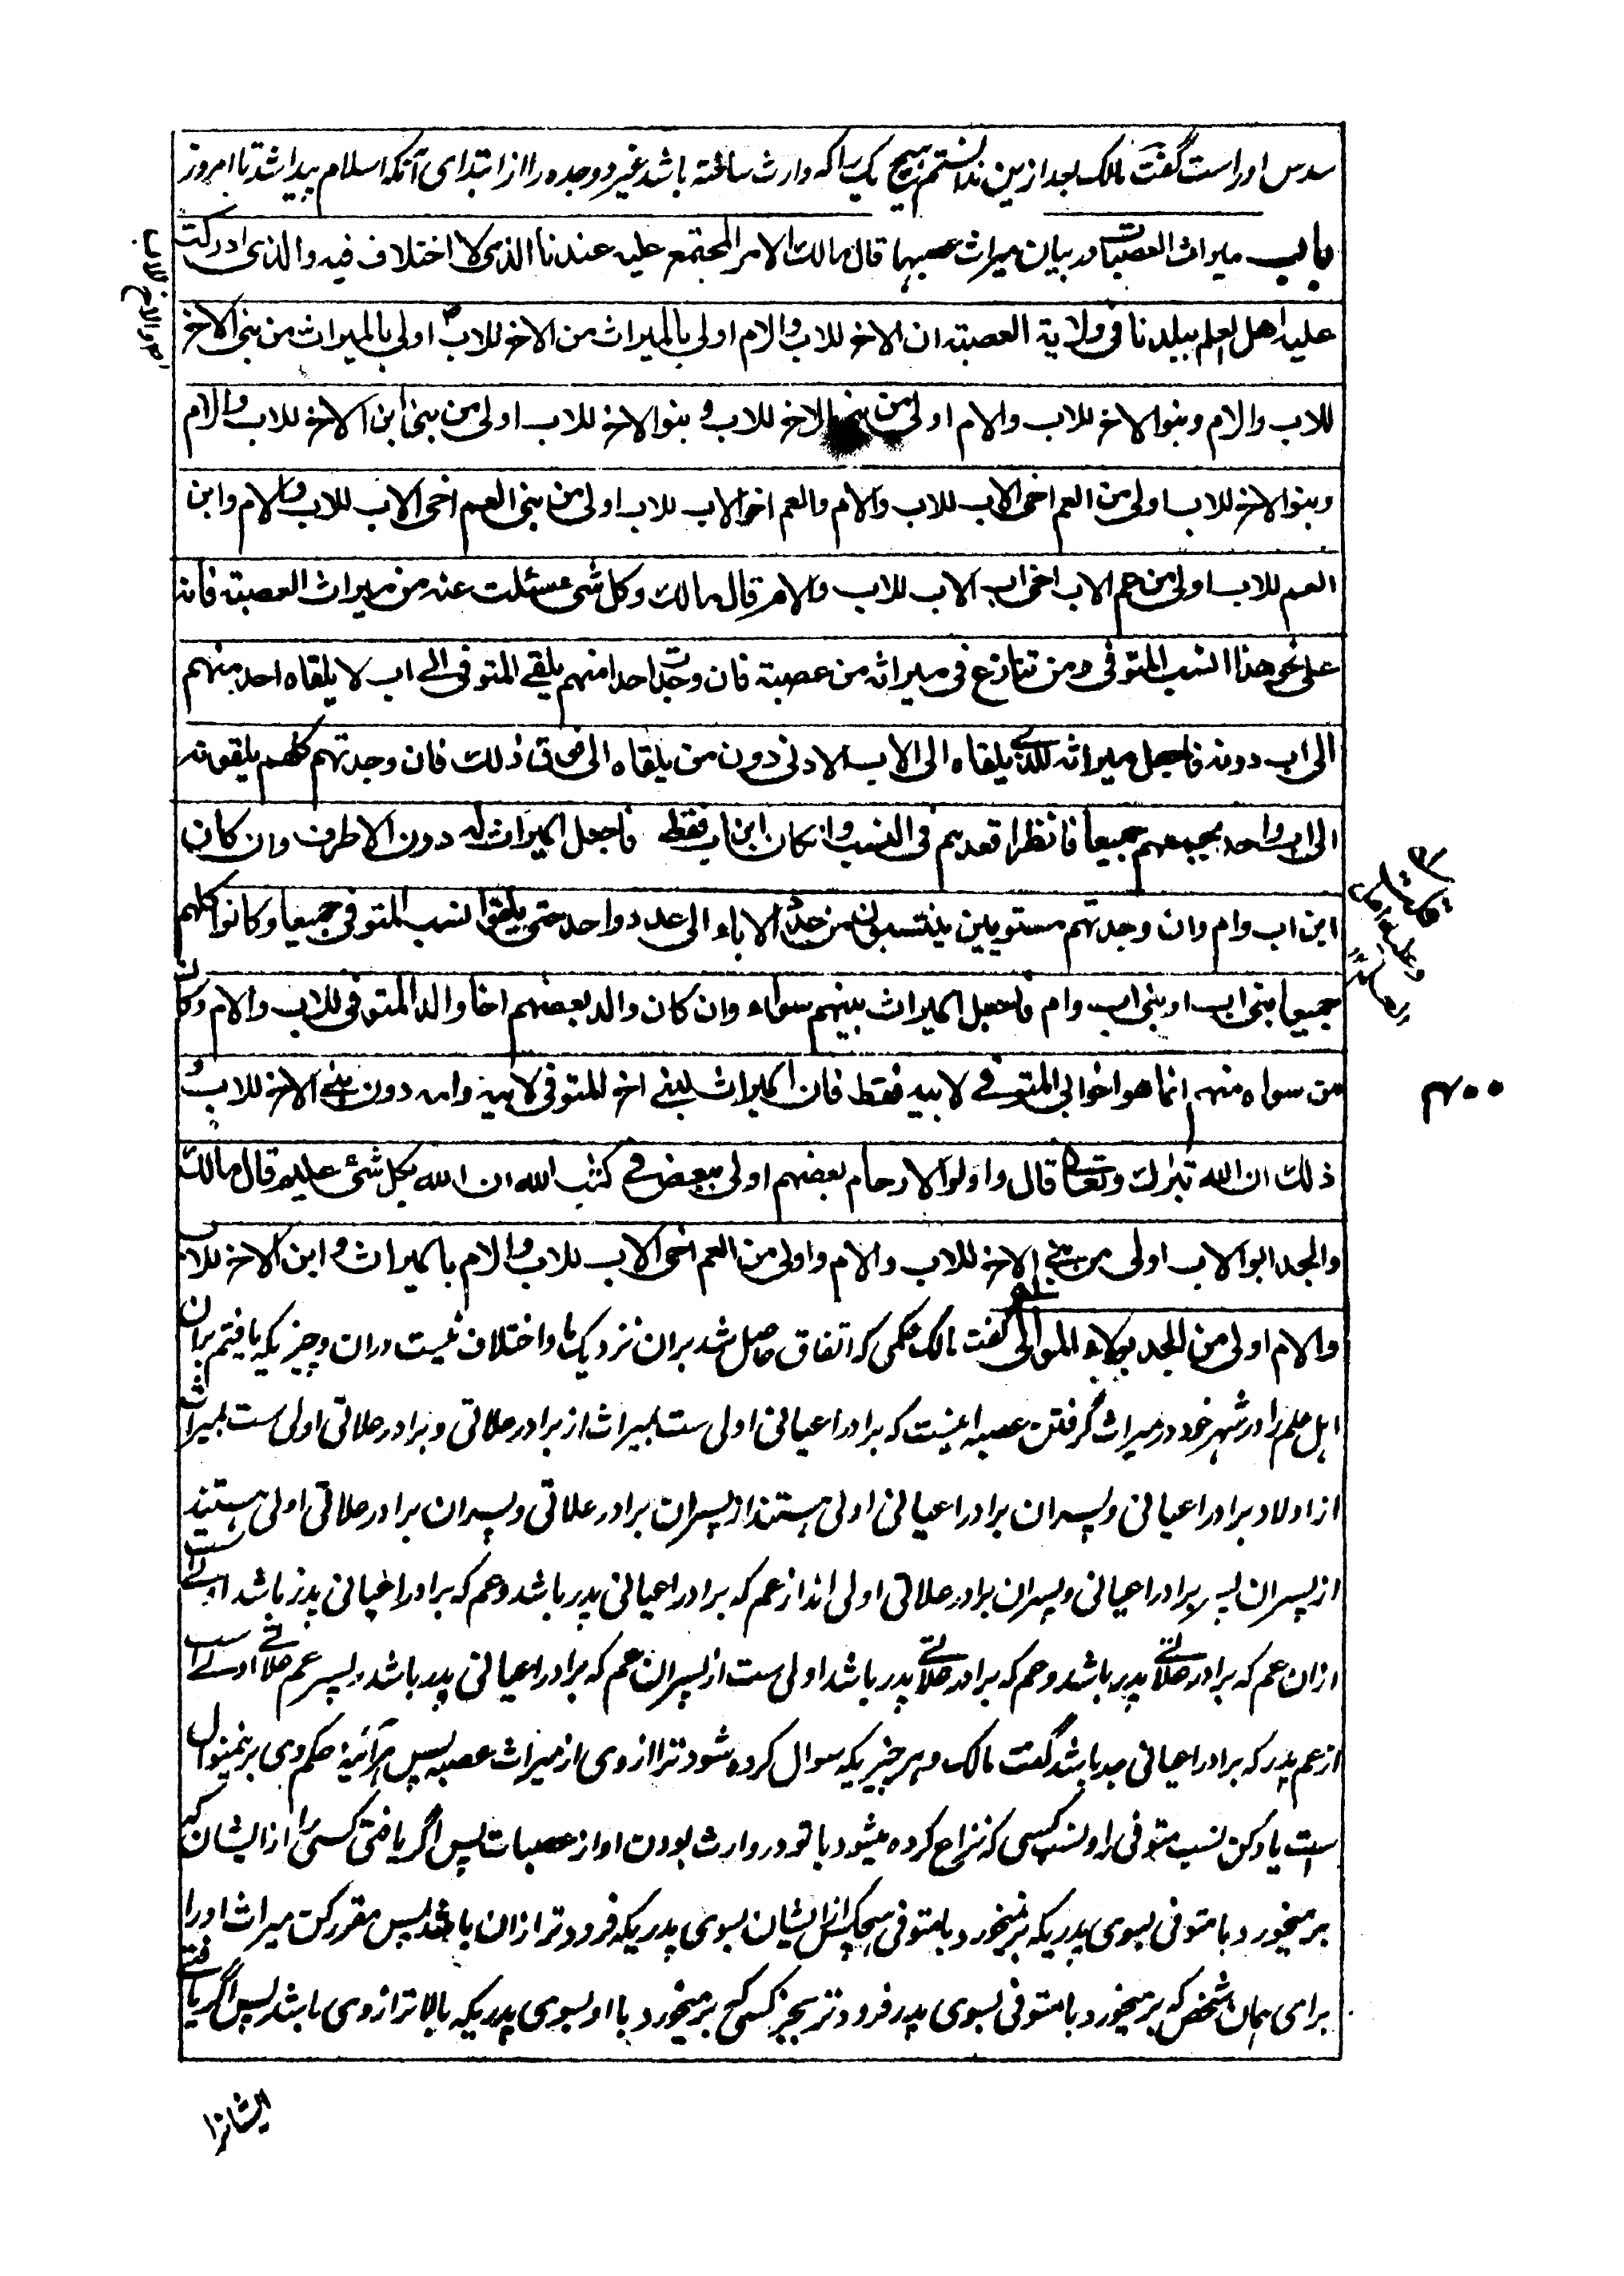 سدس او راست گفت مالک بعد ازین ندانستم هیچ یکی را که وارث ساخته باشد غیر دو جده را از ابتدای آنکه اسلام پیدا شد تا امروز
باب میراث العصبات در بیان میراث عصبها قال مالك الامر المجتمع عليه عندنا الذى لا اختلاف فيه والذى ادركت
عليه اهل العلم ببلدنا فى ولاية العصبة ان الاخ للاب والام اولى بالميراث من الاخ للاب اولى بالميراث من بنى الاخ
للاب والام وبنو الاخ للاب والام اولى من بنى الاخ للاب و بنو الاخ للاب اولى من بنى ابن الاخ للاب والام
وبنو الاخ للاب اولى من العم اخى الاب للاب والام والعم اخو الاب للاب اولى من بنى العم اخى الاب للاب والام وابن
العم للاب اولى من عم الاب اخى اب الاب للاب والام قال مالك وكل شى سئلت عنه من ميراث العصبة فانه
على نحو هذا انسب المتوفى ومن تنازع فى ميراثه من عصبة فان وجدت احدا منهم يلقى المتوفى الى اب لا يلقاه احد منهم
الى اب دونه فاجعل ميراثه للذى يلقاه الى الاب الادنى دون من يلقاه الى فوق ذلك فان وجدتهم كلهم يلقونه
الى اب واحد يجمعهم جميعا فانظر اقعدهم فى النسب وان كان ابن اب فقط فاجعل الميراث له دون الاطرف وان كان
ابن اب وام وان وجدتهم مستويين ينتسبون من عدد الاباء الى عدد واحد حتى يلقوا نسب المتوفى جميعا وكانوا كلهم
جميعا بنى اب او بنى اب وام فاجعل الميراث بينهم سواء وان كان والد بعضهم اخا والد المتوفى للاب والام وكان
من سواه منهم انما هو اخو ابى المتوفى لابيه فقط فان الميراث لبنى اخ المتوفى لابيه وامه دون بنى الاخ للاب و
ذلك ان الله تبارك وتعالى قال واولو الارحام بعضهم اولى ببعض فى كتب الله ان الله بكل شئ عليم قال مالك
والجد ابو الاب اولى من بنى الاخ للاب والام واولى من العم اخى الاب للاب والام بالميراث و ابن الاخ للاب
والام اولى من الجد بولاء الموالى گفت مالک حکمی که اتفاق حاصل شد بران نزدیک ما و اختلاف نیست دران و چیزیکه یافتم بران
اہل علم را در شہر خود در میراث گرفتن عصبہ اینست که برادر اعیانی اولی ست بمیراث از برادر علاتی و برادر علاتی اولی ست بمیراث
از اولاد برادر اعیانی و پسران برادر اعیانی اولی ہستند از پسران برادر علاتی و پسران برادر علاتی اولی ہستند
از پسران پسر برادر اعیانی و پسران برادر علاتی اولی اند از عم که برادر اعیانی پدر باشد و عم که برادر اعیانی پدر باشد اولی ست
ازان عم که برادر علاتی پدر باشد و عم که برادر علاتی پدر باشد اولی ست از پسران عم که برادر اعیانی پدر باشد و پسر عم علاتی اولی ست
از عم پدر که برادر اعیانی جد باشد گفت مالک و ہر چیزیکه سوال کرده شود ترا از وی از میراث عصبہ پس ہر آئینہ حکم وی برینمنوال
ست یاد کن نسب متوفی را و نسب کسی که نزاع کرده میشود با تو در وارث بودن او از عصبات پس اگر یافتی کسی را از ایشان که
بر میخورد با متوفی بسوی پدریکه بر نمیخورد با متوفی ہیچکس از ایشان بسوی پدریکه فرود تر ازان باشد پس مقرر کن میراث او را
برای ہمان شخص که بر میخورد با متوفی بسوی پدر فرود تر بجز کسی که بر میخورد با او بسوی پدریکه بالا تر از وی باشد پس اگر یافتی
ایشانرا